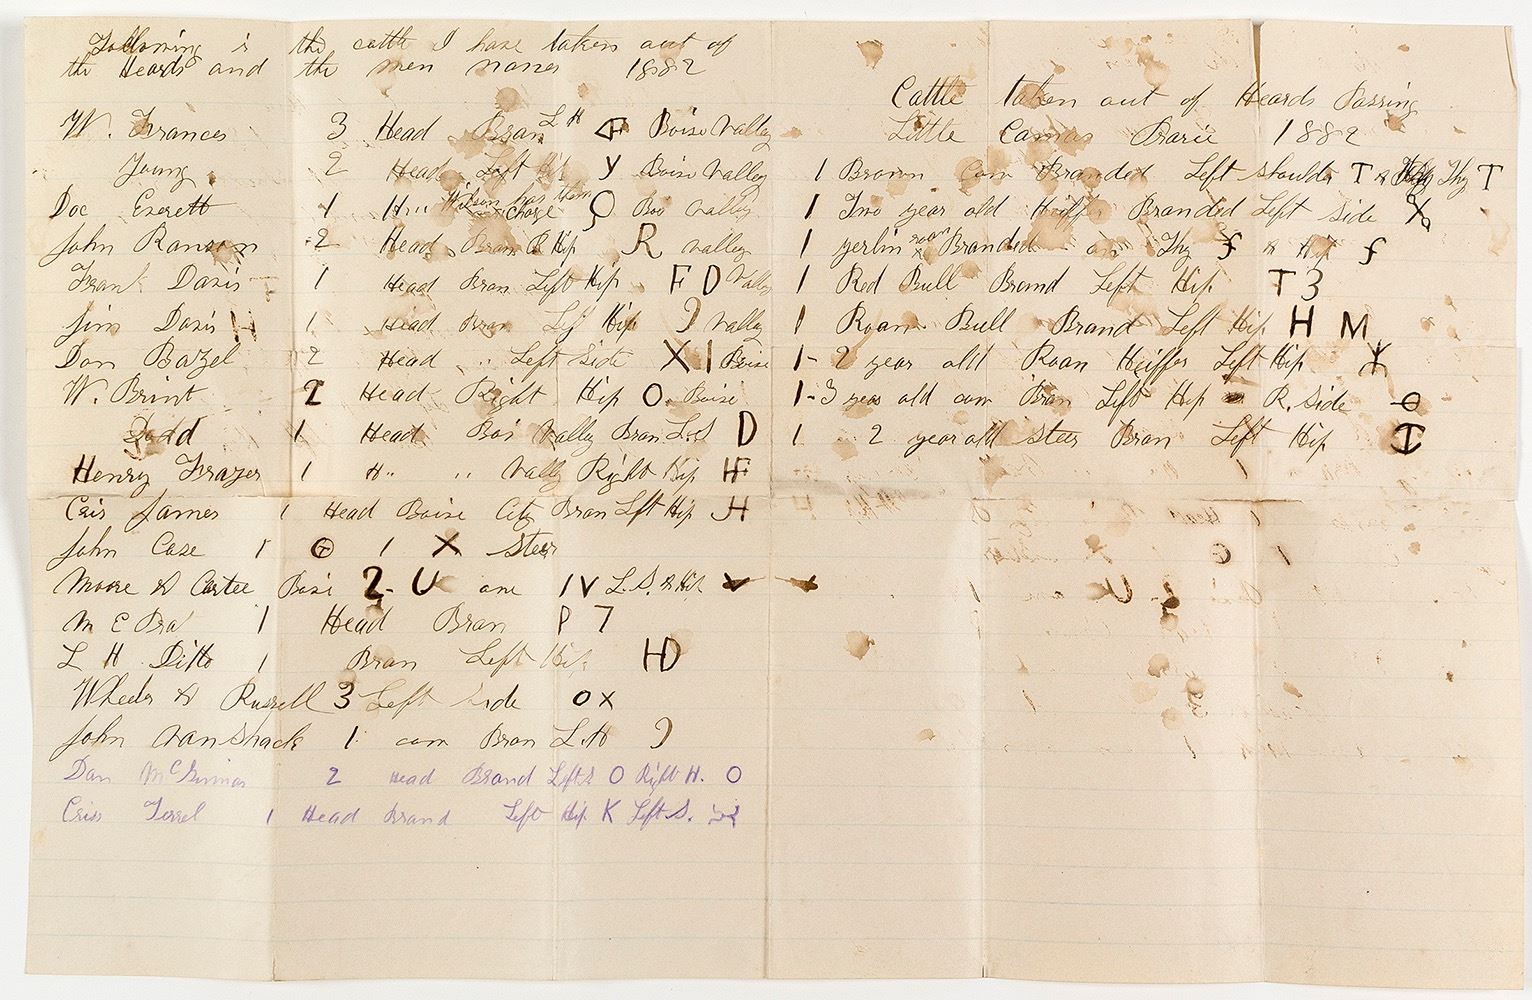 Following is the cattle I have taken out of
the Heards and the men names 1882
W. Frances 3 Head Bran L H F Boise Vally
Young 2 Head Left Hip Y Boise Vally
Doc Everett 1 H,, Wilson has them Boi Vally
John Ransom 2 Head Bran R Hip R Vally
Frank Davis 1 Head Bran Left Hip F D Vally
Jim Davis H 1 Head Bran Lef Hip Vally
Dan Bazel 2 Head ,, Left Side X I Boise
W. Brint 2 Head Right Hip O. Boise
Todd 1 Head Boi Vally Bran L.S D
Henry Frazer 1 H,, ,, Vally Right Hip HF
Cris James 1 Head Boise City Bran Lft Hip JH
John Case 1 1 X Steer
Moore & Cartee Boxi 2- U one IV L.S. R Hip
M E Bra 1 Head Bran P 7
L H Ditto 1 Bran Left Hip HD
Wheeler & Russell 3 Left Side O X
John Vanshack 1 cow Bran L.H
Dan 2 Head Brand Left S O Right H. O
Criss Terrel 1 Head Brand Left Hip K Left S.
Cattle taken out of Heards Passing
Little Camas Prarie 1882
1 Brown Cow Branded Left Shoulder T & Thy T
1 Two year old Heiffr Branded Left Side
1 yerlin roan Branded on Thy f & Hip f
1 Red Bull Brand Left Hip T 3
1 Roan Bull Brand Left Hip H M
1- 2 year old Roan Heiffer Left Hip
1-3 year old cow Bran Left Hip R. Side
1 2 year old Steer Bran Left Hip